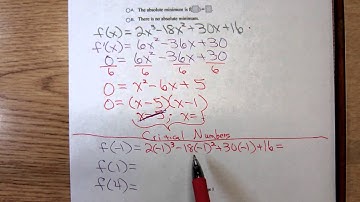 A. The absolute minimum is
B. There is no absolute minimum.
f(x) = 2x³-18x²+30x+16
f'(x) = 6x²-36x+30
0 = 6x²-36x+30
6 6 6 6
0 = x²-6x+5
0 = (x-5)(x-1)
x=5; x=1
Critical Numbers
f(-1) = 2(-1)³-18(-1)²+30(-1)+16=
f(1) =
f(4) =